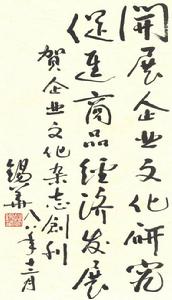 開展企业文化研究
促進商品經济发展
贺企业文化杂志創刊
锡華
八八年十二月